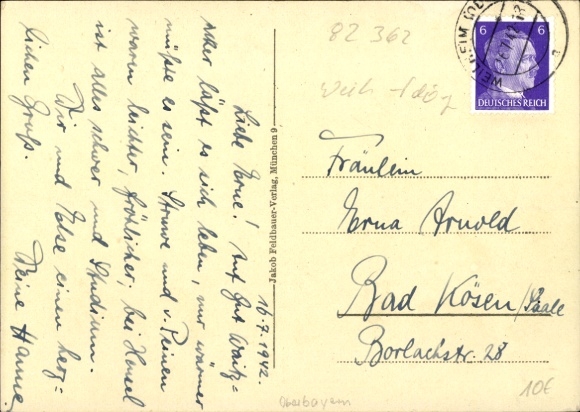 16.7.1942.
Liebe Erne! Auf Gut Waitz=
acker läßt es sich leben, nur wärmer
müßte es sein. Struwe und v. Reinen
waren leichter, fröhlicher, bei Hensel
ist alles schwer und Studium.
Dir und Else einen herz=
lichen Gruß.
Deine Hanne
Jakob Feldbauer-Verlag, München 9
82 362
WEILHEIM (OBERBAY)
6 6
DEUTSCHES REICH
Fräulein
Erna Arnold
Bad Kösen/Saale
Borlachstr. 28
Oberbayern
10€